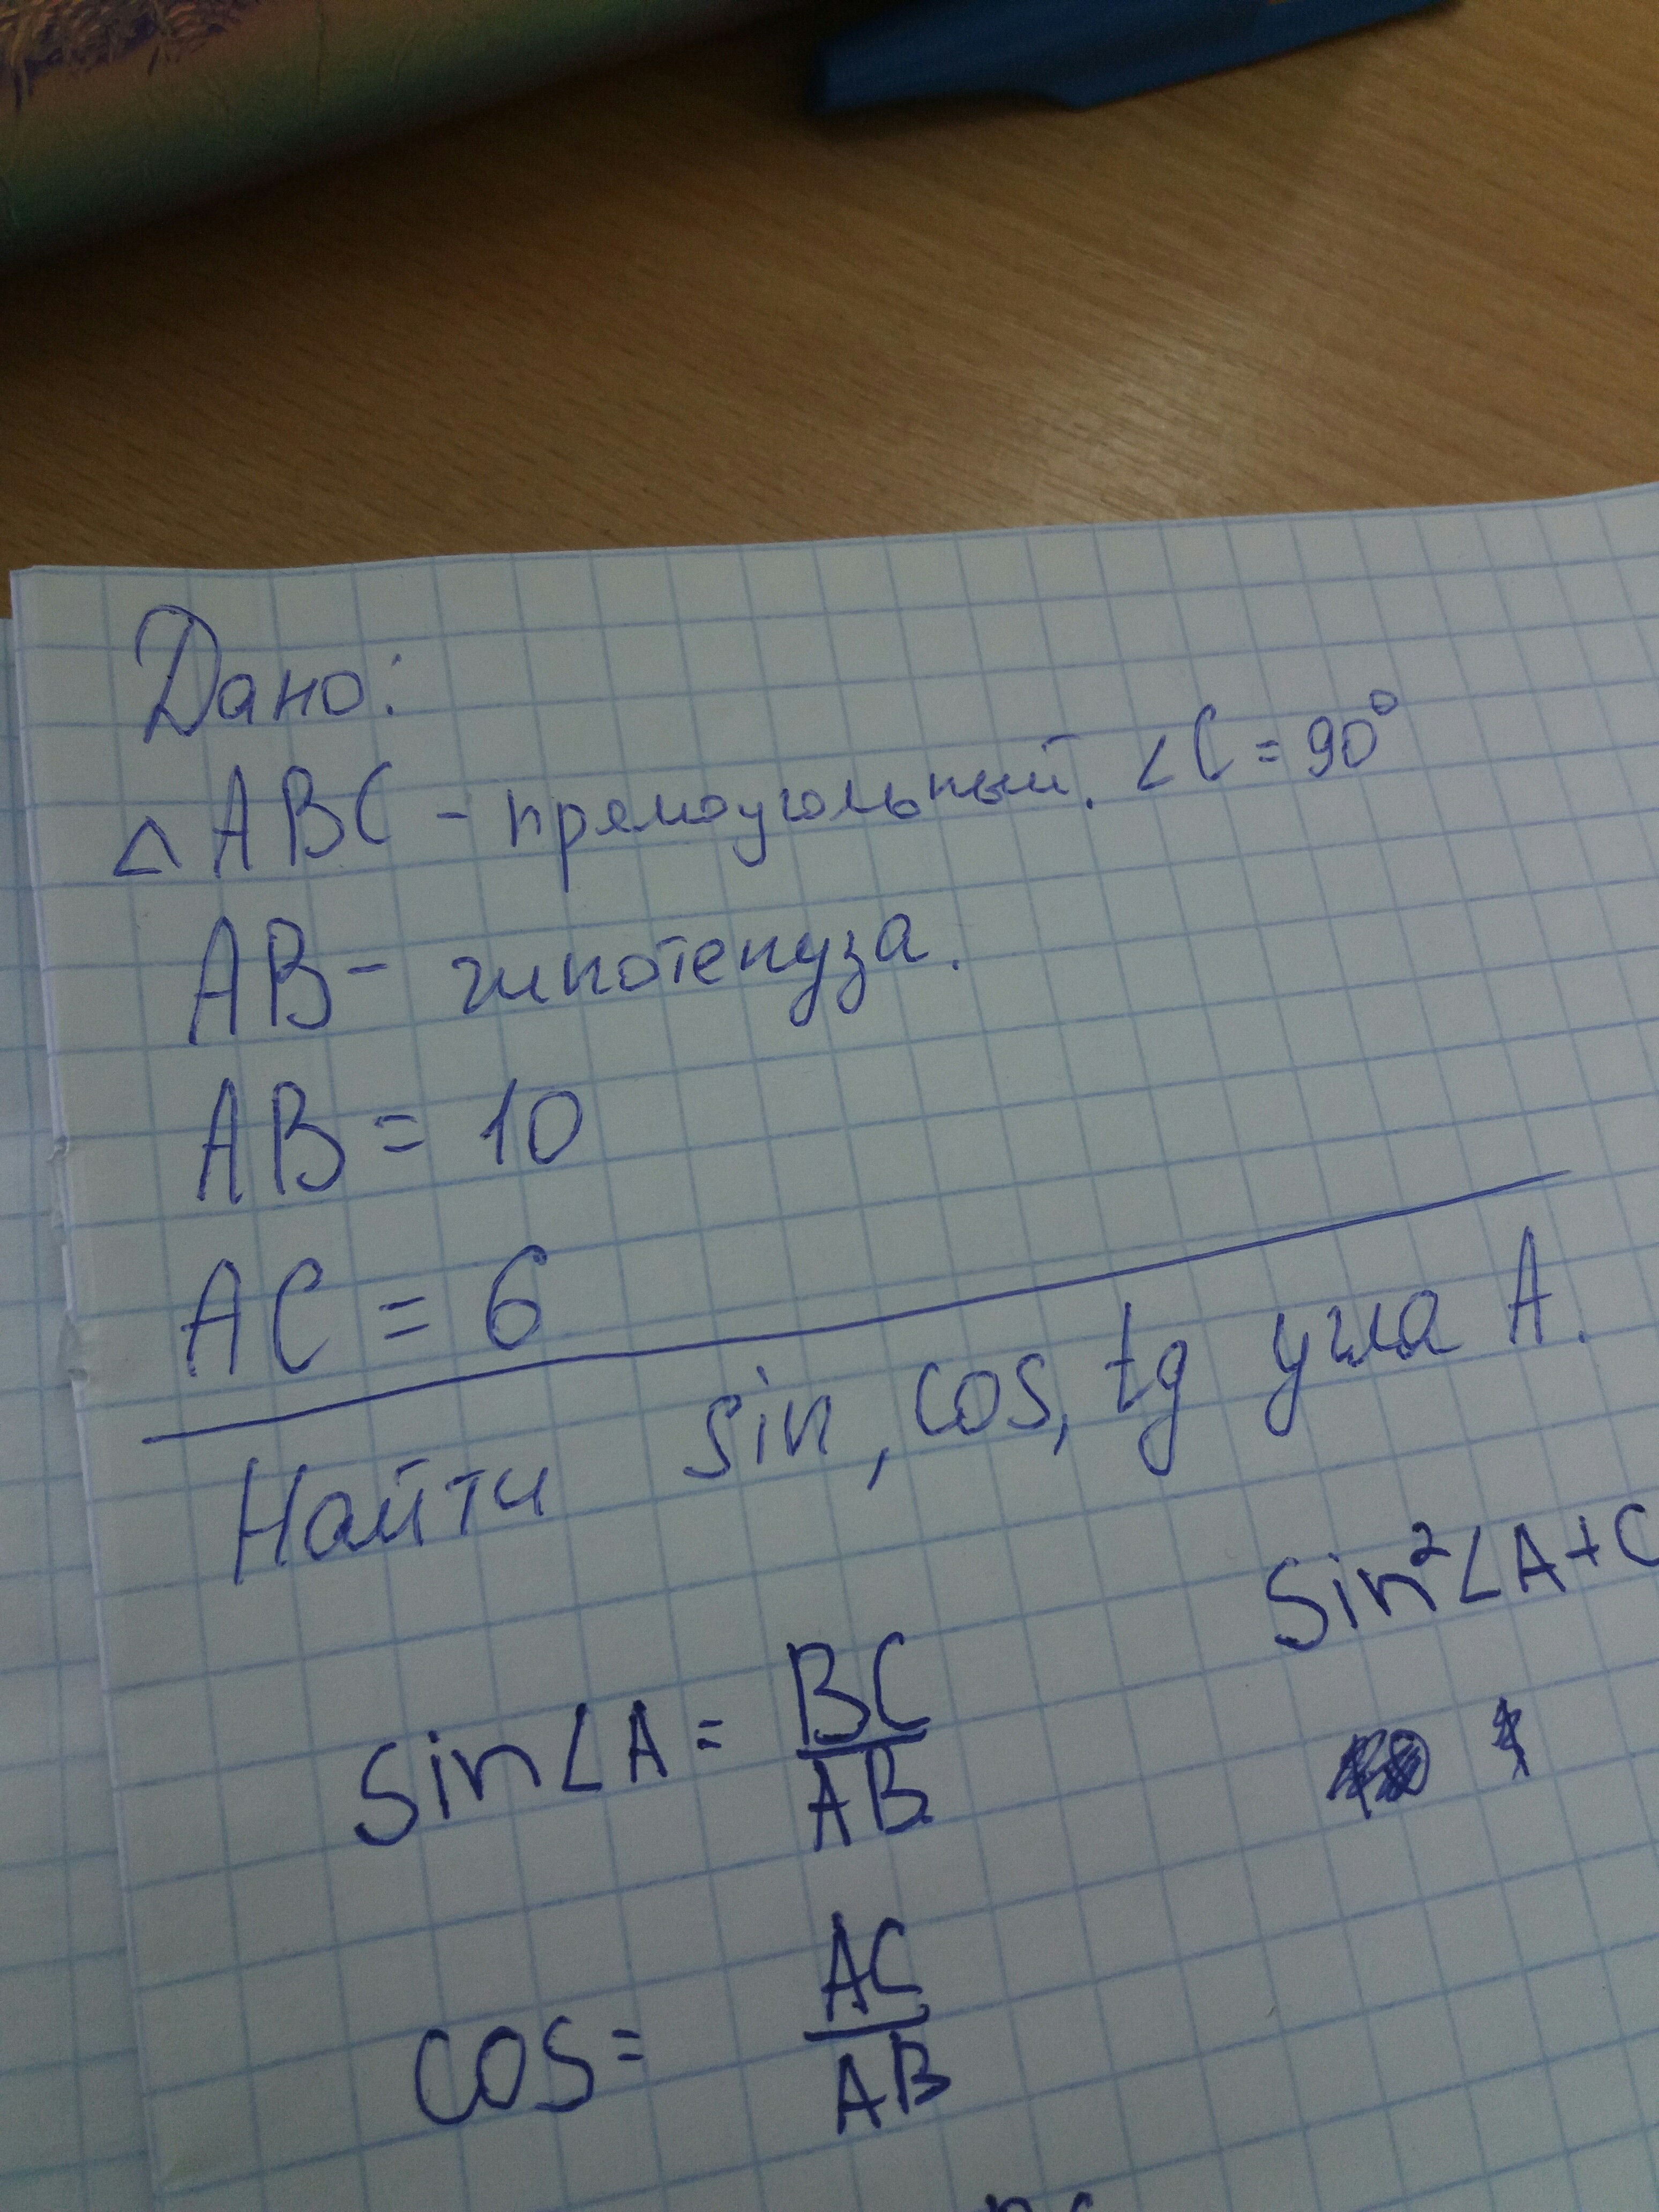 Дано:
△ ABC - прямоугольный. ∠C = 90°
AB - гипотенуза.
AB = 10
AC = 6
Найти sin, cos, tg угла A.
Sin²∠A+C
Sin∠A = BC
AB
cos = AC
AB